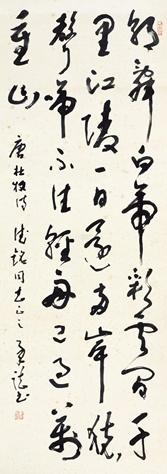 朝辭白帝彩雲間千
里江陵一日還兩岸猿
聲啼不住輕舟已過萬
重山
唐杜牧詩 銘同志正之 書